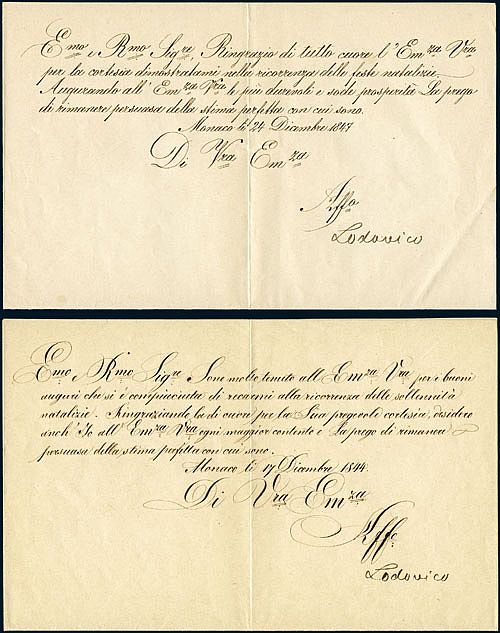 Emo e Rmo Sigre, Ringrazio di tutto cuore l'Emza Vra
per la cortesia dimostratami nella ricorrenza delle feste natalizie.
Augurando all'Emza Vra le più durevoli e sode prosperità La prego
di rimanere persuasa della stima perfetta con cui sono.
Monaco li 24 Dicembre 1847
Di Vra Emza
Affo
Lodovico
Emo e Rmo Sigre Sono molto tenuto all'Emza Vra per i buoni
auguri che si è compiaciuta di recarmi alla ricorrenza delle sollennità
natalizie. Ringraziandola di cuore per la Sua pregevoli cortesia, desidero
anch'Io all'Emza Vra ogni maggior contento e La prego di rimaner
persuasa della stima perfetta con cui sono.
Monaco li 17 Dicembre 1844.
Di Vra Emza
Affo
Lodovico